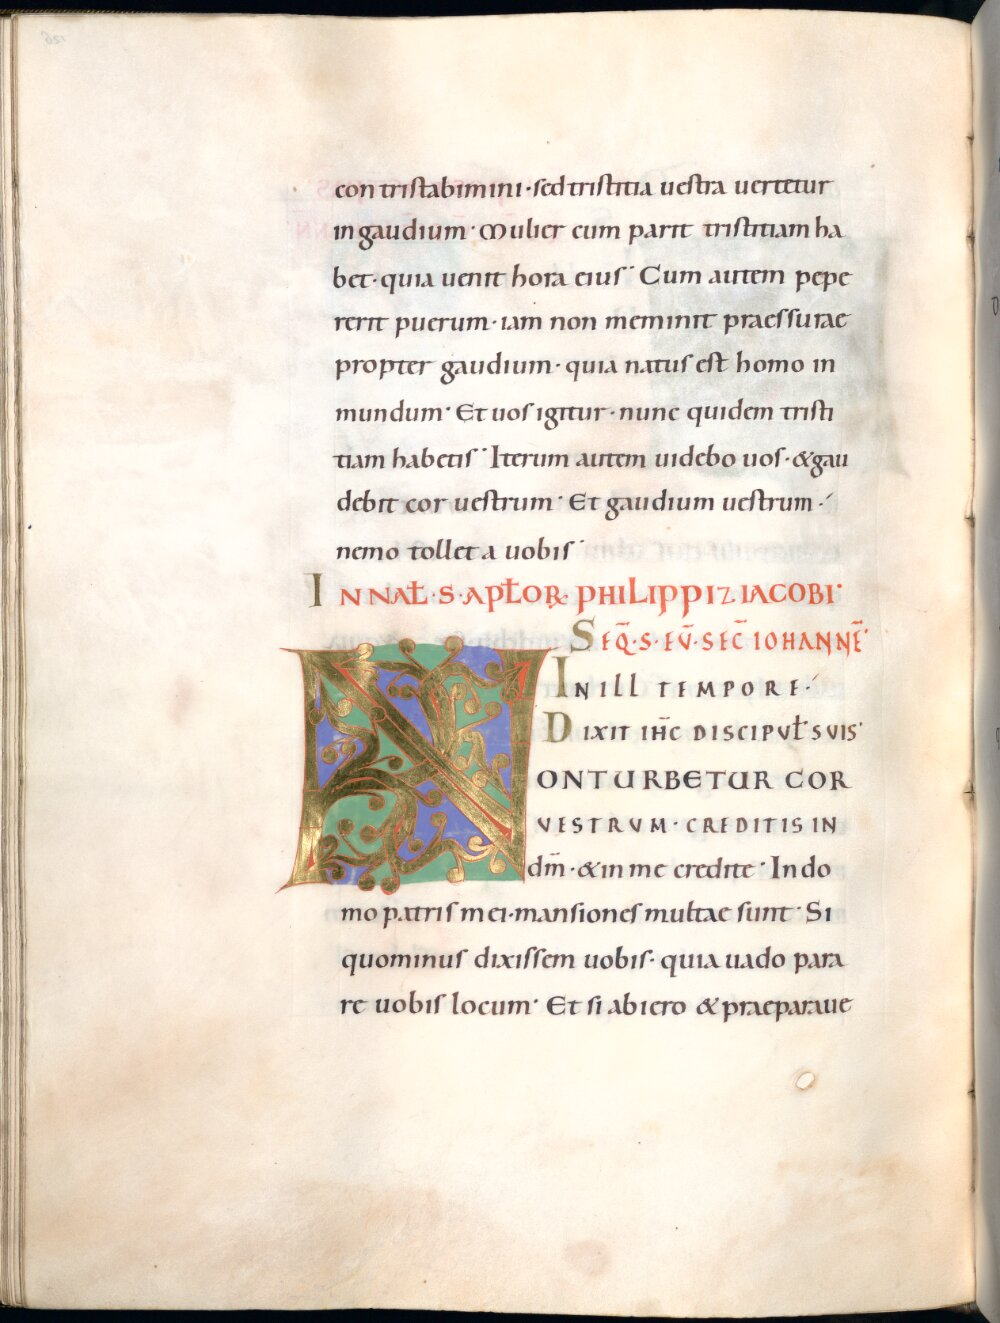 contristabimini · sed tristitia uestra uertetur
in gaudium · Mulier cum parit tristitiam ha
bet · quia uenit hora eius · Cum autem pepe
rerit puerum · iam non meminit praessurae
propter gaudium · quia natus est homo in
mundum · Et uos igitur · nunc quidem tristi
tiam habetis · Iterum autem uidebo uos · & gau
debit cor uestrum · Et gaudium uestrum ·
nemo tollet a uobis ·
IN NAT̄ · S · APŁOR̨ · PHILIPPI ⁊ IACOBI ·
SEQ̄ · S · EṼ · SEC̄ IOHANNĒ ·
IN ILL TEMPORE ·
DIXIT IHC̄ DISCIPUŁ SUIS ·
NON TURBETUR COR
VESTRVM · CREDITIS IN
dm̄ · & in me credite · In do
mo patris mei · mansiones multae sunt · Si
quominus dixissem uobis · quia uado para
re uobis locum · Et si abiero & praeparaue